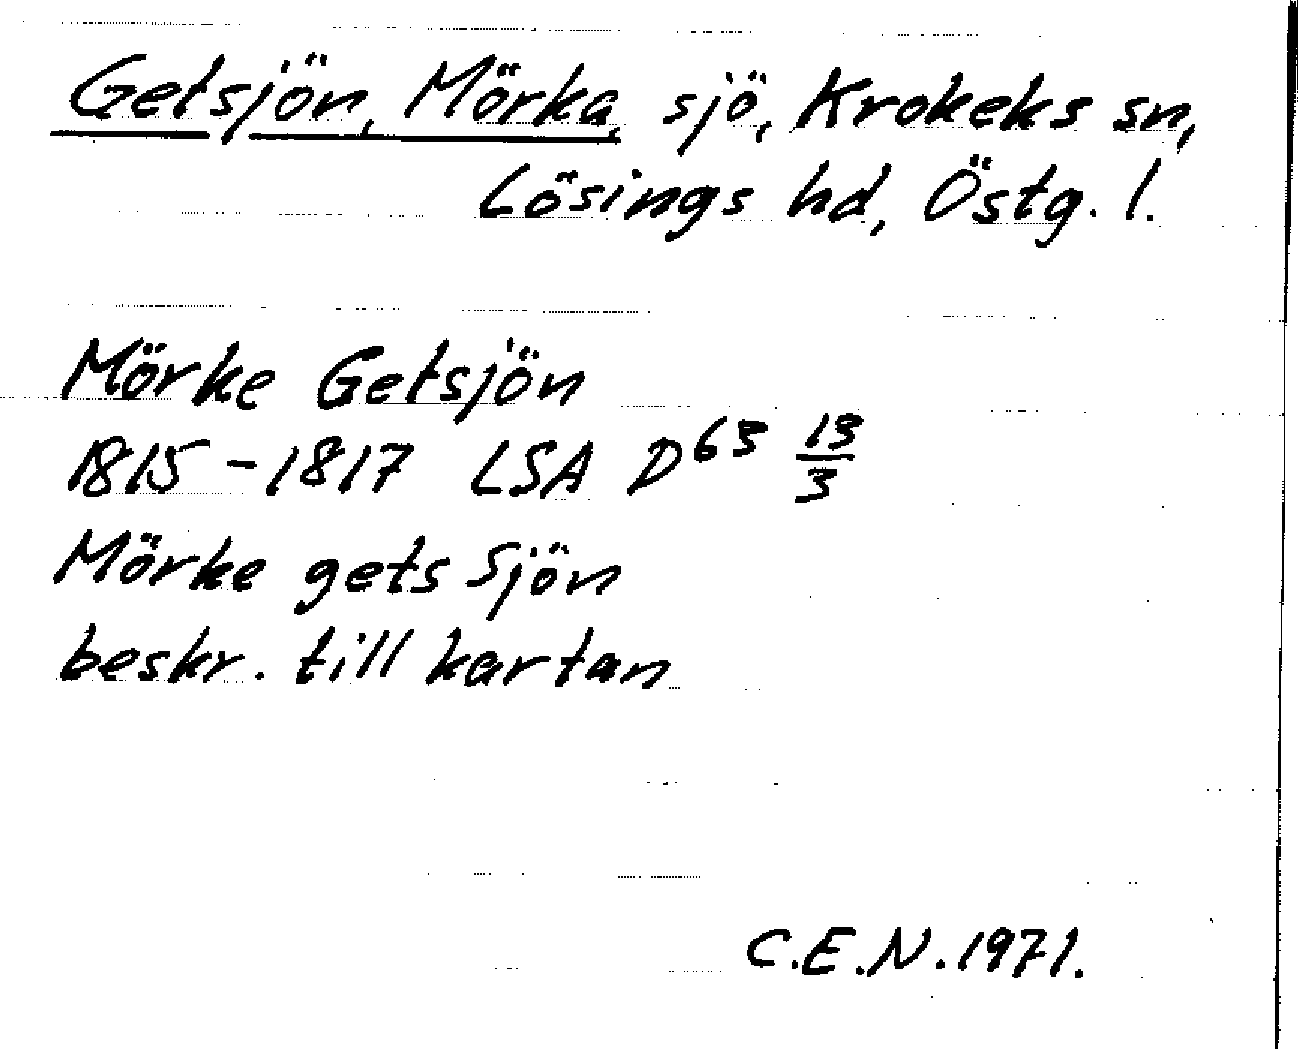 Getsjön, Mörka, sjö, Krokeks sn,
Lösings hd, Östg. l.
Mörke Getsjön
1815-1817 LSA D63 13/3
Mörke gets Sjön
beskr. till kartan
C.E.N. 1971.